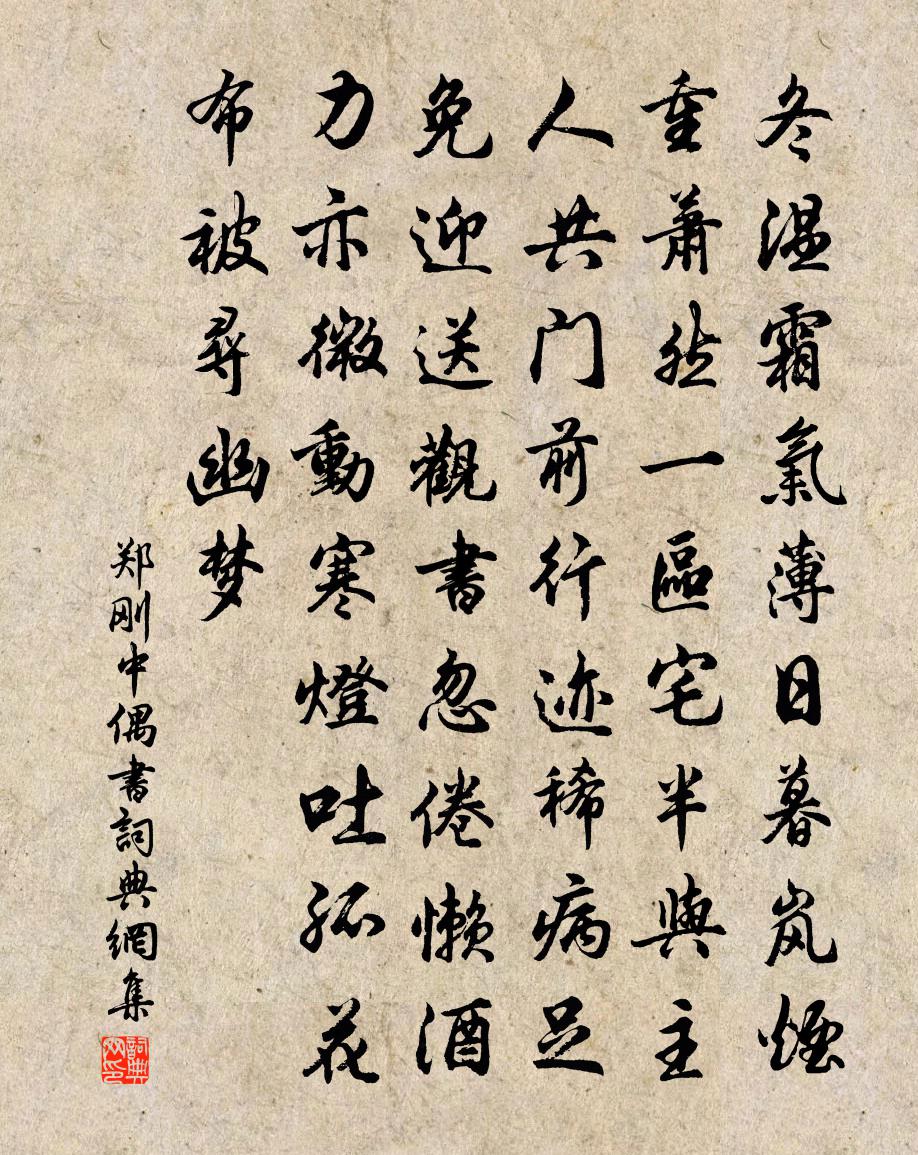 冬温霜氣薄日暮岚煙
重蕭然一區宅半與主
人共門前行迹稀病足
免迎送觀書忽倦懒酒
力亦微動寒燈吐孤花
布被尋幽梦
郑刚中偶書詞典網集
詞典网印